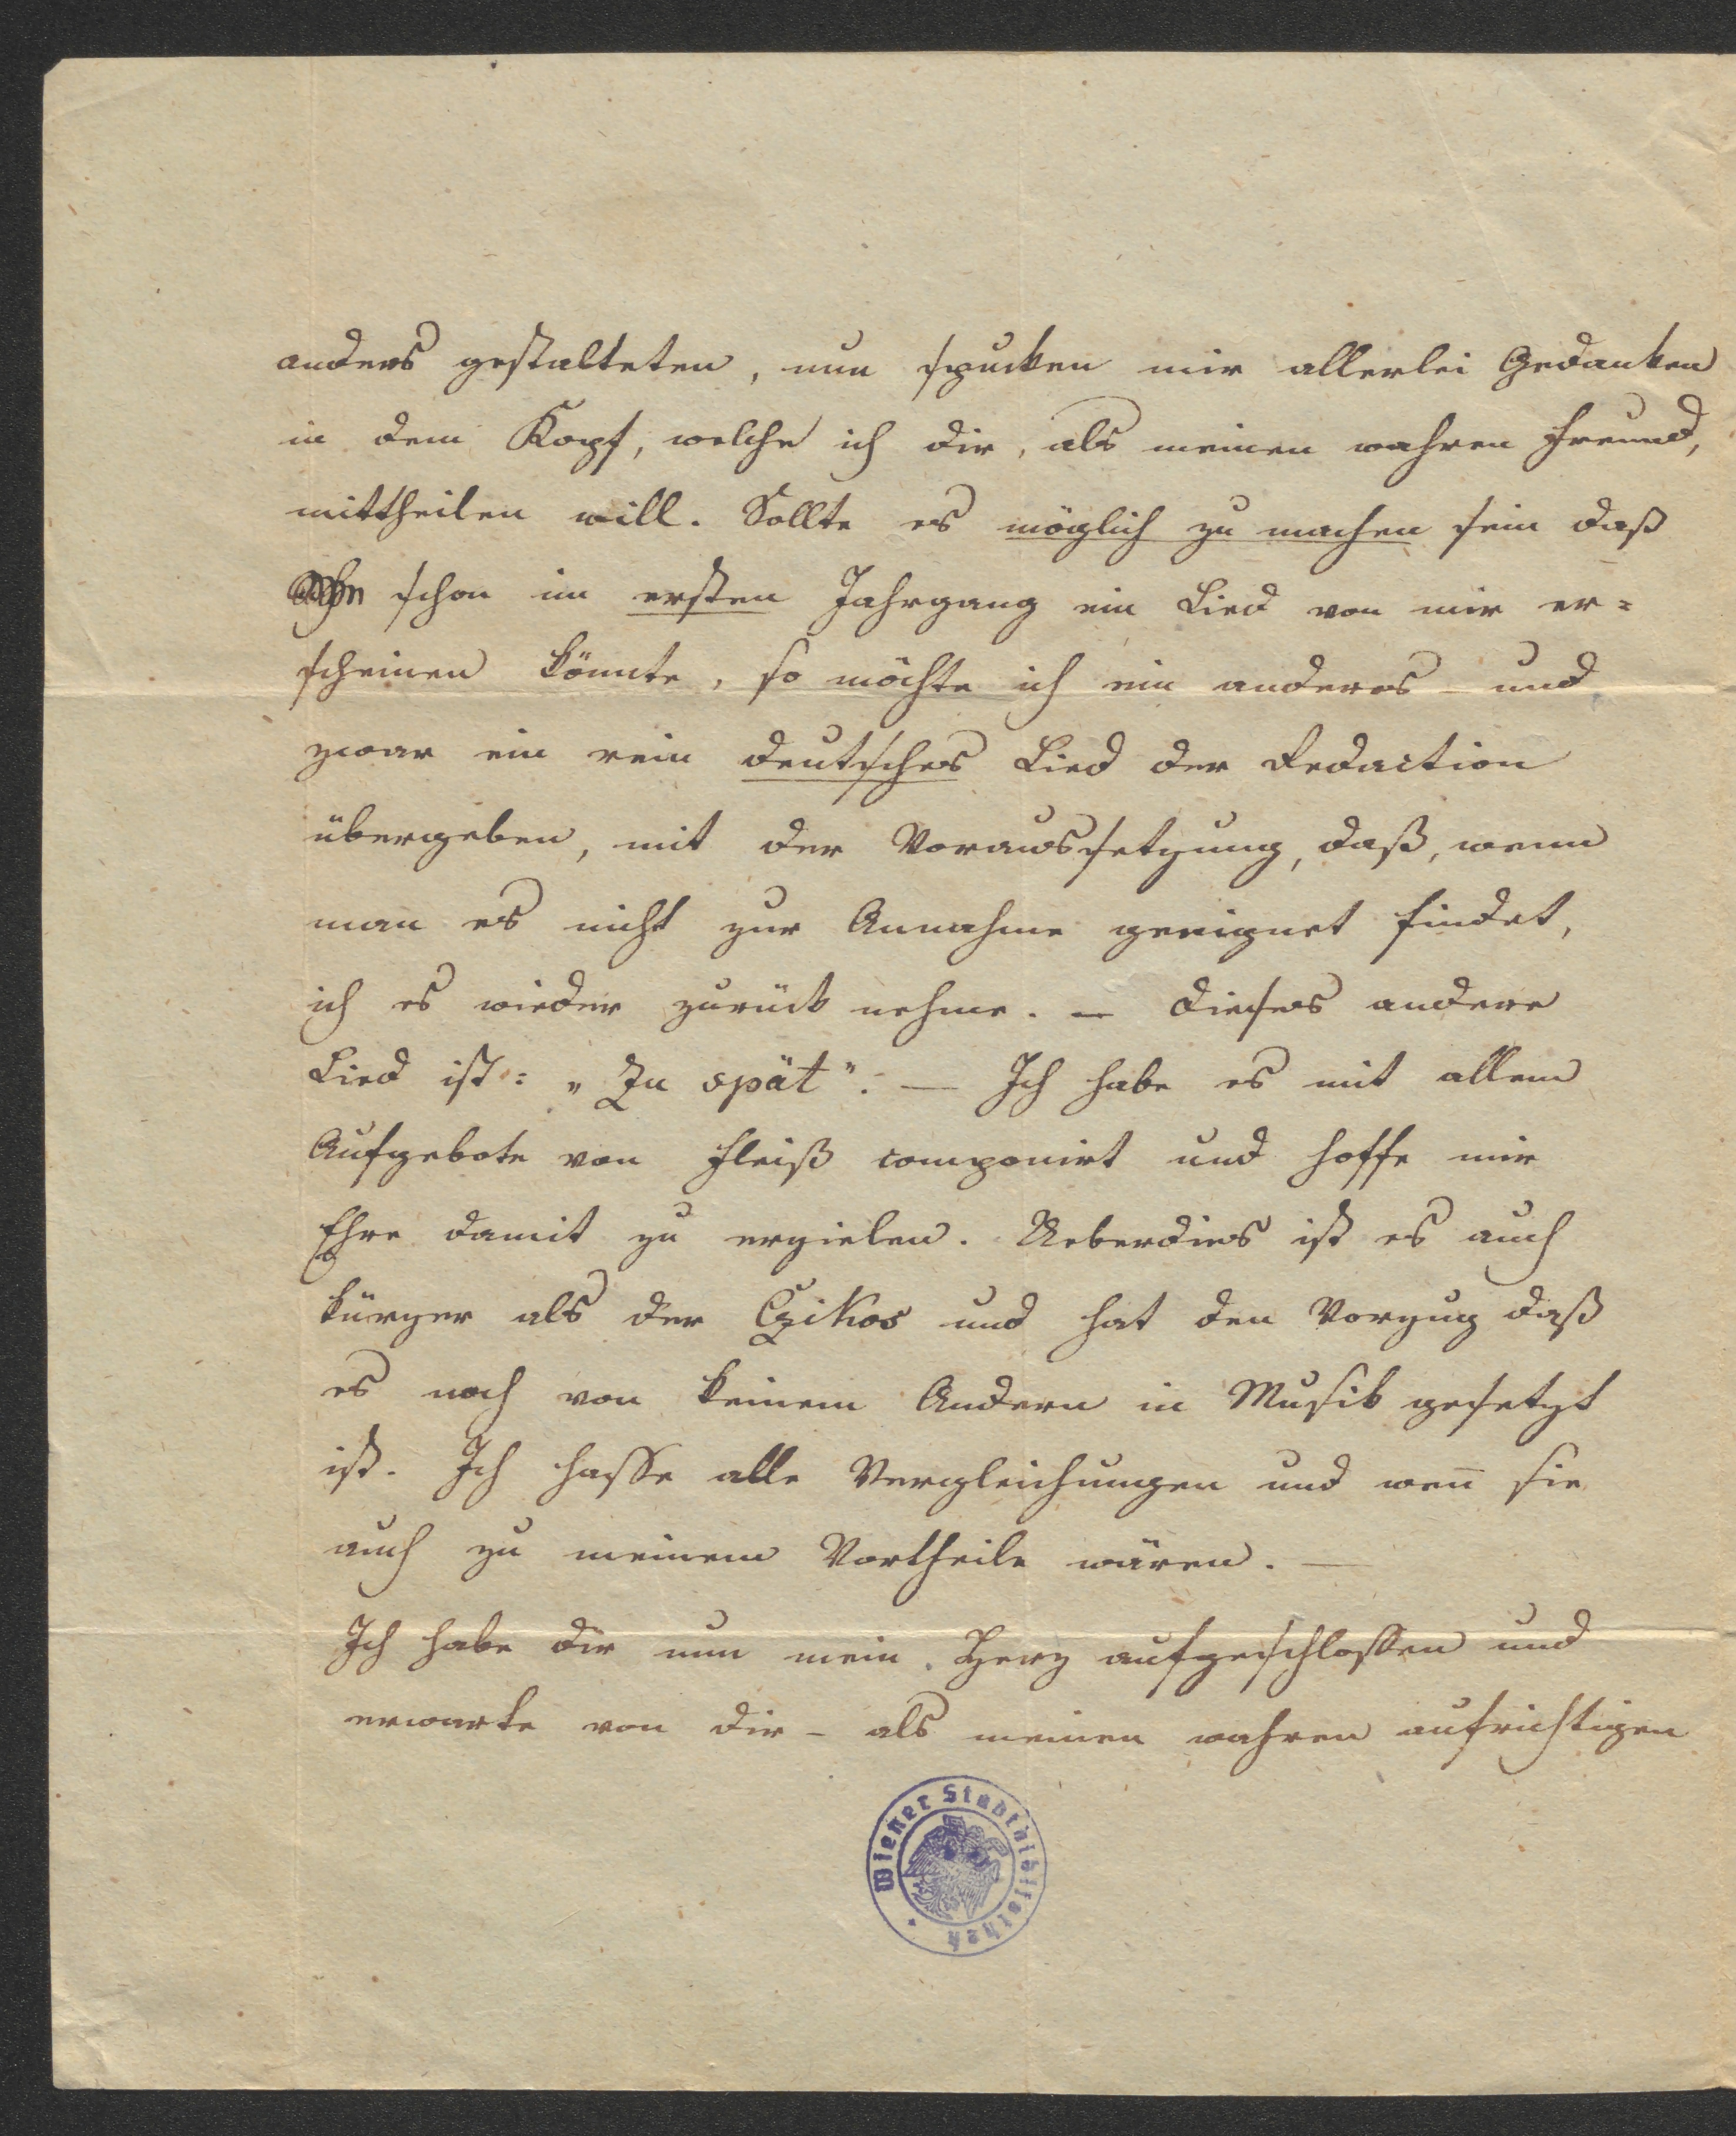 anders gestalteten, nun spucken mir allerlei Gedanken
in dem Kopf, welche ich dir, als meinen wahren Freund,
mittheilen will. Sollte es möglich zu machen sein daß
schon im ersten Jahrgang ein Lied von mir er=
scheinen könnte, so möchte ich ein anderes und
zwar ein rein deutsches Lied der Redaction
übergeben, mit der Voraussetzung, daß, wenn
man es nicht zur Annahme geeignet findet,
ich es wieder zurück nehme. — Dieses andere
Lied ist: „Zu spät". — Ich habe es mit allem
Aufgebote von Fleiß componirt und hoffe mir
Ehre damit zu erzielen. Ueberdies ist es auch
kürzer als der Czikos und hat den Vorzug daß
es noch von keinem Andern in Musik gesetzt
ist. Ich hasse alle Vergleichungen und wen̄ sie
auch zu meinem Vortheile wären. —
Ich habe dir nun mein Herz aufgeschlossen und
erwarte von dir – als meinen wahren aufrichtigen
Wiener Stadtbibliothek